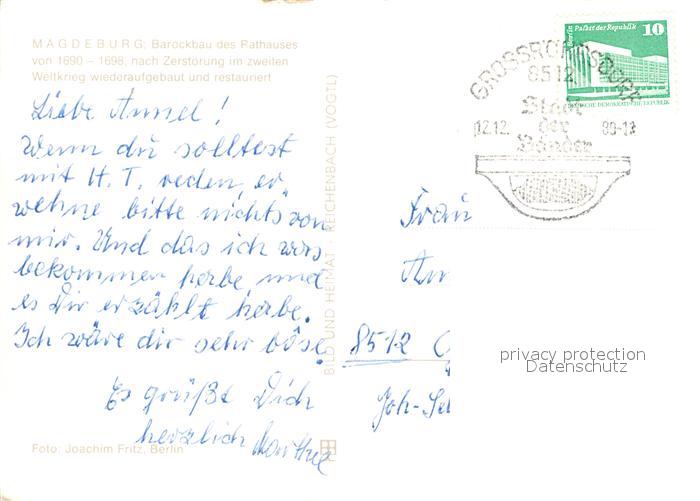 MAGDEBURG; Barockbau des Rathauses
von 1690 – 1698, nach Zerstörung im zweiten
Weltkrieg wiederaufgebaut und restauriert
Liebe Annel!
Wenn du solltest
mit H. T. reden, er
wehne bitte nichts von
mir. Und das ich was
bekommen habe, und
es Dir erzählt habe.
Ich wäre dir sehr böse.
Es grüßt Dich
herzlich Marthel
Foto: Joachim Fritz, Berlin
BILD UND HEIMAT · REICHENBACH (VOGTL)
Berlin Palast der Republik 10
DEUTSCHE DEMOKRATISCHE REPUBLIK
GROSSRÖHRSDORF
8512
Stadt
12.12. der
Bänder
Frau
An
8512 G
Joh-Se
privacy protection
Datenschutz